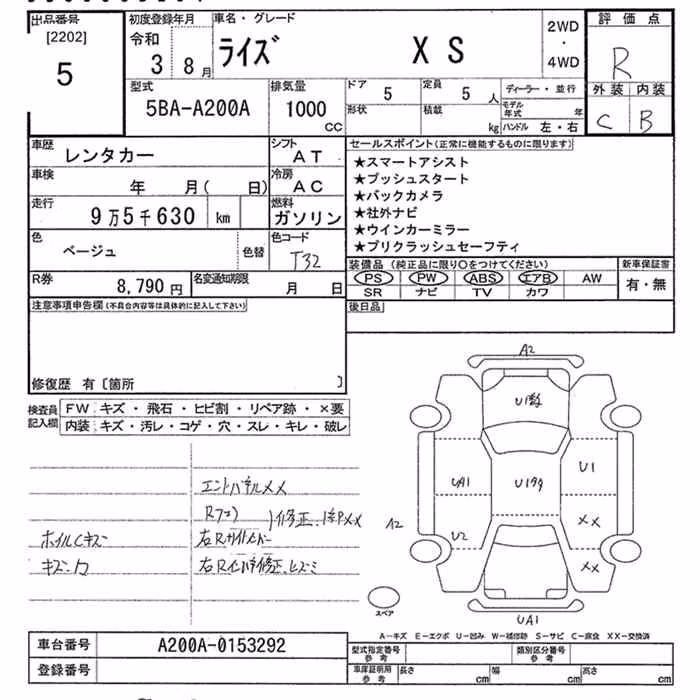 出品番号
[2202]
5
初度登録年月
令和
3 8月
車名・グレード
ライズ XS
2WD
・
4WD
評価点
R
外装 内装
C B
型式
5BA-A200A
排気量
1000
CC
ドア
5
定員
5 人
形状
積載
kg
ディーラー・並行
モデル年式 年
ハンドル 左・右
車歴
レンタカー
シフト
AT
車検
年 月( 日)
冷房
AC
走行
9万5千630 km
燃料
ガソリン
色
ベージュ
色替
色コード
T32
R券
8,790 円
名変通知期限
月 日
セールスポイント(正常に機能するものに限ります)
★スマートアシスト
★プッシュスタート
★バックカメラ
★社外ナビ
★ウインカーミラー
★プリクラッシュセーフティ
装備品(純正品に限り〇をつけてください)
PS PW ABS エアB AW
SR ナビ TV カワ
新車保証書
有・無
後日品
注意事項申告欄(不具合内容等は具体的に記入して下さい)
修復歴 有〔箇所 〕
検査員
記入欄
FW キズ・飛石・ヒビ割・リペア跡・×要
内装 キズ・汚レ・コゲ・穴・スレ・キレ・破レ
エンドパネルメメ
ホイルCキズ
キズ・凹
A2
U1
UA1
U2
A2
XX
XX
UA1
スペア
A-キズ E-エクボ U-凹み W-補修跡 S-サビ C-腐食 XX-交換済
車台番号
A200A-0153292
登録番号
型式指定番号
参考
類別区分番号
参考
車庫証明用
参考
長さ cm
幅 cm
高さ cm